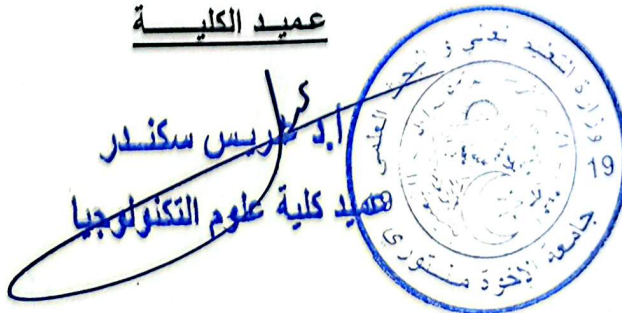 عميد الكليـــــة
ا.د خريس سكنـدر
عميد كلية علوم التكنولوجيا
وزارة التعليم العالي و البحث العلمي
جامعة الإخوة منتوري
19